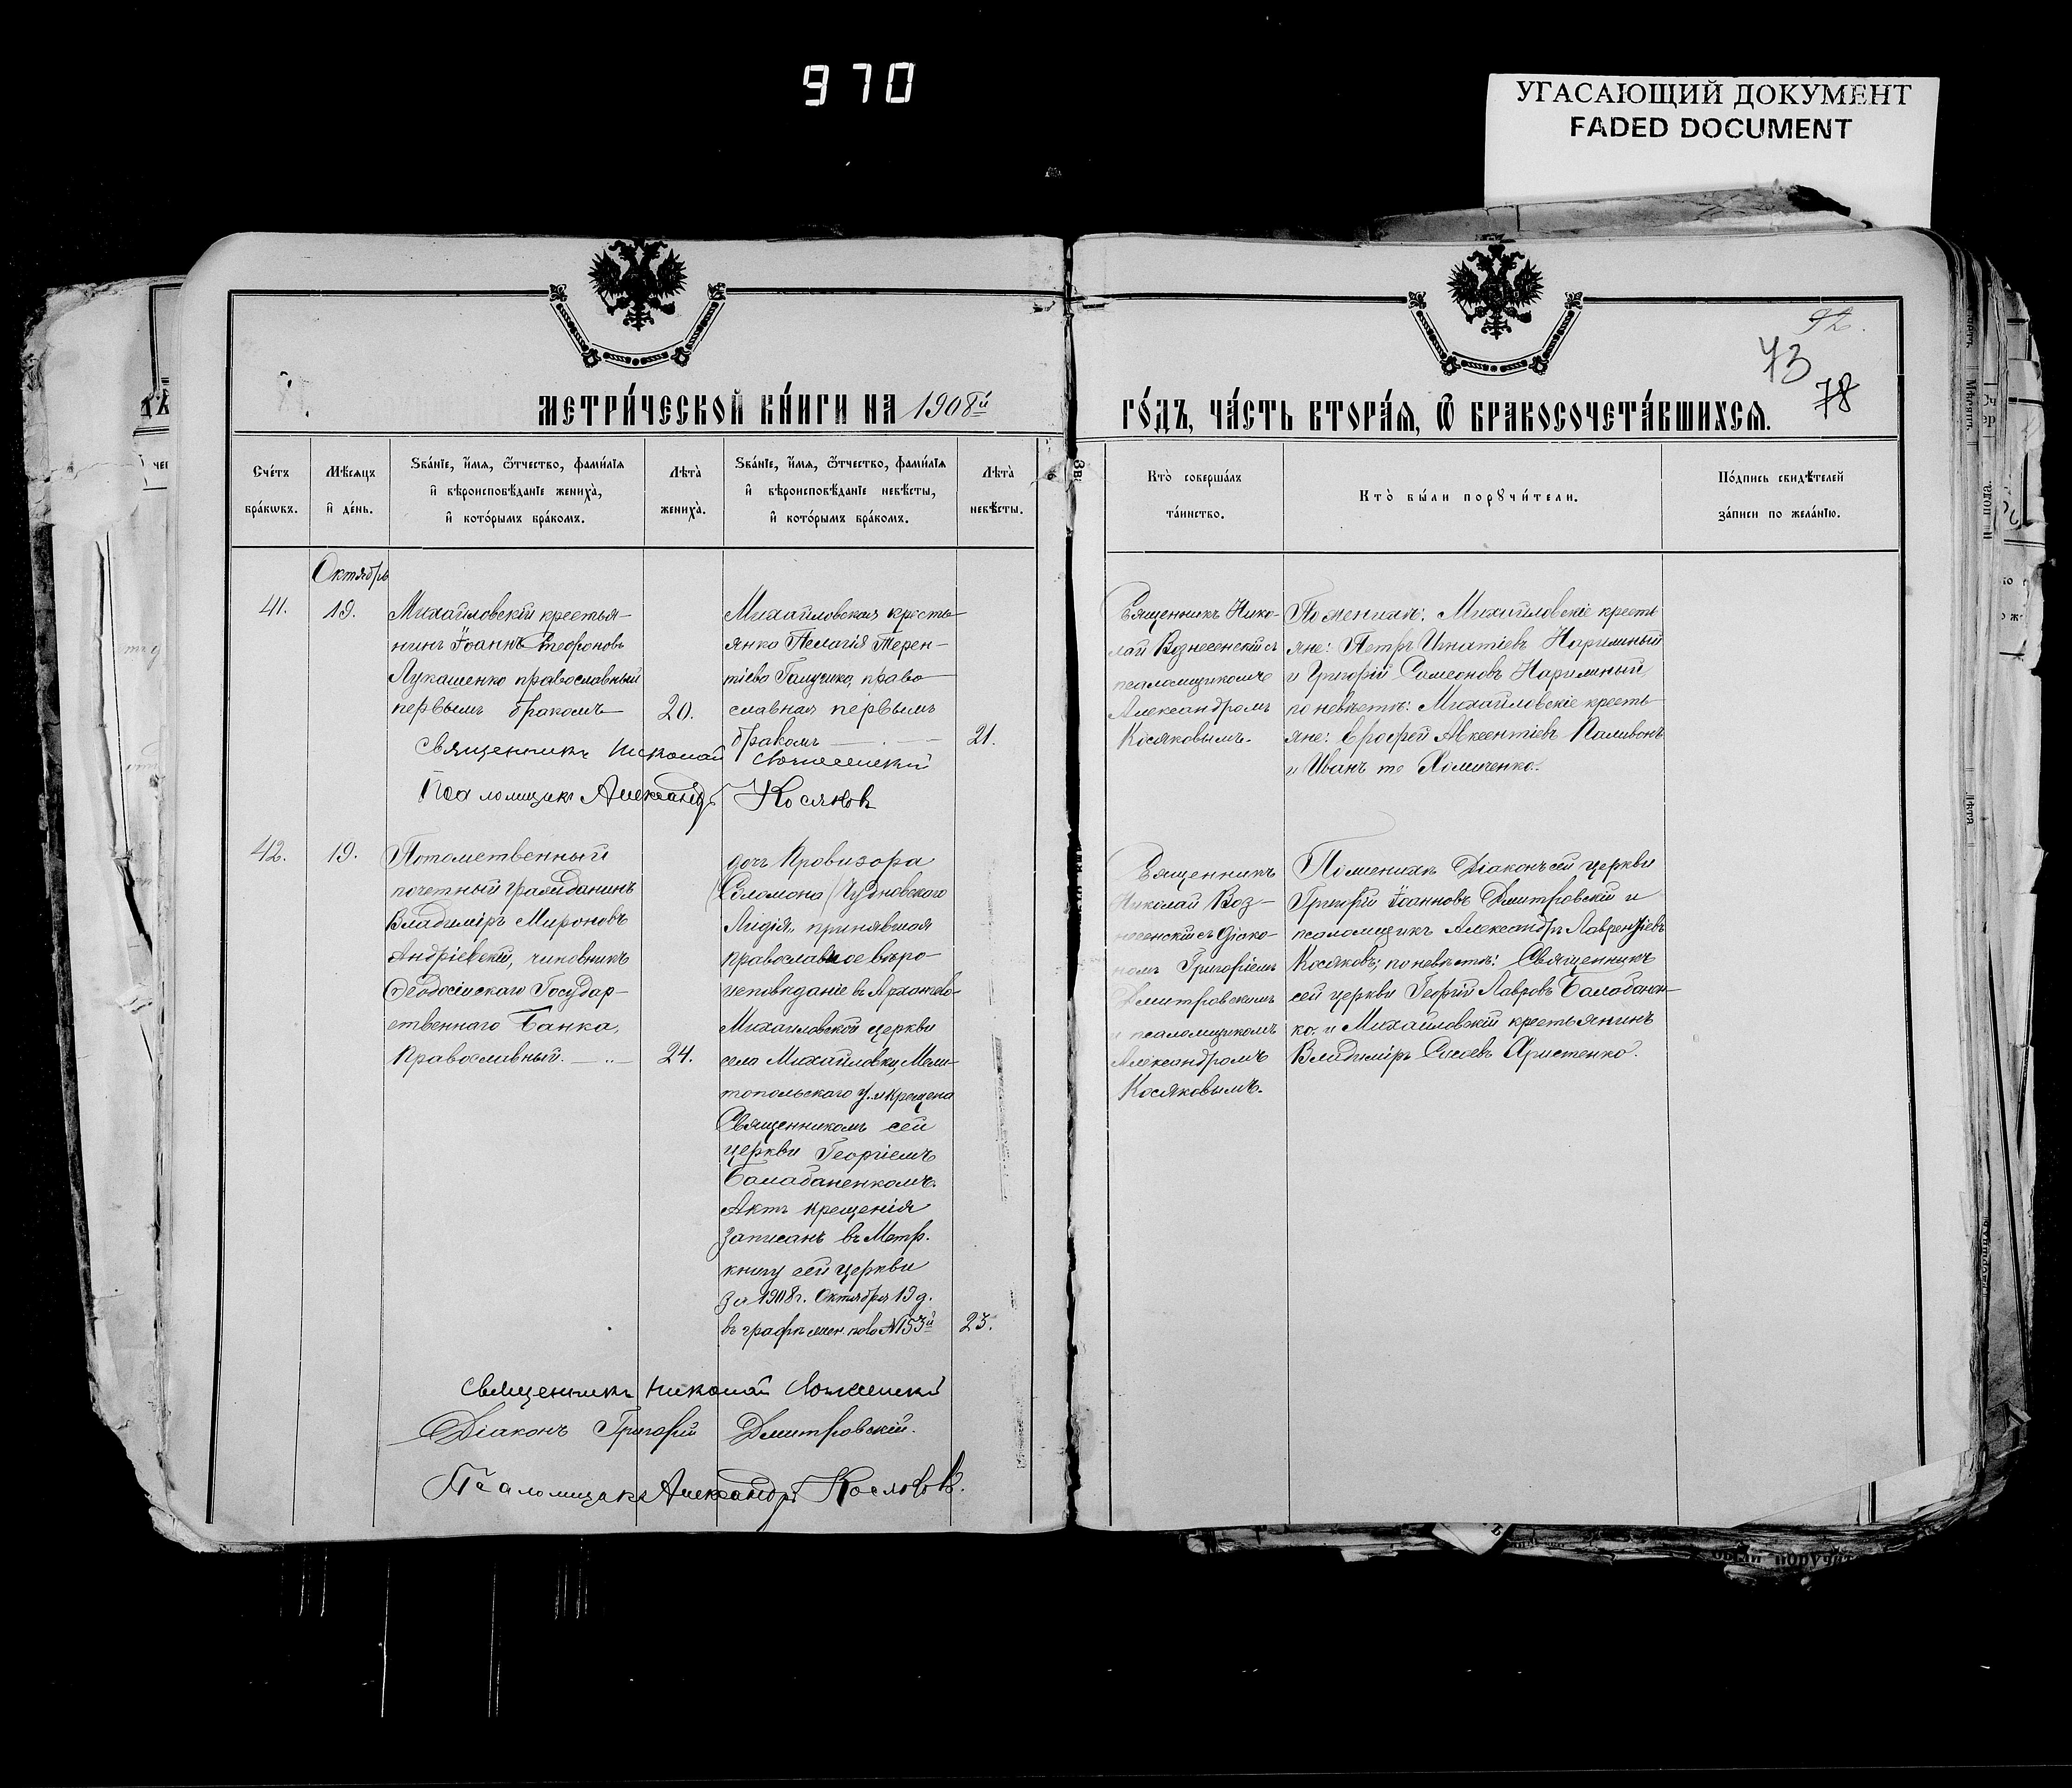 970
УГАСАЮЩИЙ ДОКУМЕНТ
FADED DOCUMENT
92.
73
78
МЕТРИ́ЧЕСКОЙ КНИ́ГИ НА 1908й
ГО́ДЪ, ЧА́СТЬ ВТОРА́Ѧ, Ѿ БРАКОСОЧЕТА́ВШИХСѦ.
Сче́тъ
бра́кѡвъ.
Мѣ́сяцъ
и҆ де́нь.
Ѕва́нїе, и҆́мѧ, ѻ҆́тчество, фами́лїѧ
и҆ вѣроисповѣ́данїе жениха̀,
и҆ кото́рымъ бра́комъ.
Лѣта̀
жениха̀.
Ѕва́нїе, и҆́мѧ, ѻ҆́тчество, фами́лїѧ
и҆ вѣроисповѣ́данїе невѣ́сты,
и҆ кото́рымъ бра́комъ.
Лѣта̀
невѣ́сты.
Кто̀ соверша́лъ
та́инство.
Кто̀ бы́ли порꙋчи́тели.
По́дпись свидѣ́телей
за́писи по жела́нїю.
Октябрь
41.
19.
Михайловскій крестья-
нинъ Іоаннъ Стефоновъ
Лукашенко православный
первымъ бракомъ
20.
Михайловская кресть-
янка Пелагія Терен-
тіева Галушко, право-
славная первымъ
бракомъ
21.
Священникъ Нико-
лай Вознесенскій съ
псаломщикомъ
Александромъ
Косяковымъ.
По женихѣ: Михайловскіе кресть-
яне: Петръ Игнатіевъ Наримный
и Григорій Симеоновъ Наримный,
по невѣстѣ: Михайловскіе кресть-
яне: Ерофей Авксентіевъ Паливонъ
и Иванъ Хомиченко.
Священникъ Николай Вознесенскій
Псаломщикъ Александръ Косяковъ
42.
19.
Потомственный
почетный гражданинъ
Владиміръ Мироновъ
Андріевскій, чиновникъ
Ѳеодосійскаго Государ-
ственнаго Банка,
Православный.
24.
дочь Провизора
Соломона Чудновскаго
Лидія, принявшая
православное вѣро-
исповѣданіе въ Архангело-
Михайловской церкви
села Михайловки, Мели-
топольскаго у. и крещена
Священникомъ сей
церкви Георгіемъ
Балабаненкомъ.
Актъ крещенія
записанъ въ Метр.
книгу сей церкви
за 1908 г. Октября 19 д.
въ графѣ жен. пола №153й
23.
Священникъ
Николай Воз-
несенскій съ діако-
номъ Григоріемъ
Дмитровскимъ
и псаломщикомъ
Александромъ
Косяковымъ.
По женихѣ Діаконъ сей церкви
Григорій Іоанновъ Дмитровскій и
псаломщикъ Александръ Лаврентіевъ
Косяковъ; по невѣстѣ: Священникъ
сей церкви Георгій Лавровъ Балабанен-
ко, и Михайловскій крестьянинъ
Владиміръ Сысоевъ Христенко.
Священникъ Николай Вознесенскій
Діаконъ Григорій Дмитровскій.
Псаломщикъ Александръ Косяковъ.